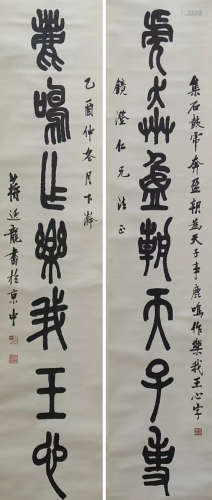 集石鼓虎奔盈朝為天子事鹿鳴作樂我王心字
虎奔盈朝天子事
鏡澄仁兄法正
乙酉仲冬月下澣
鹿鳴作樂我王心
蔣近龍書於京中